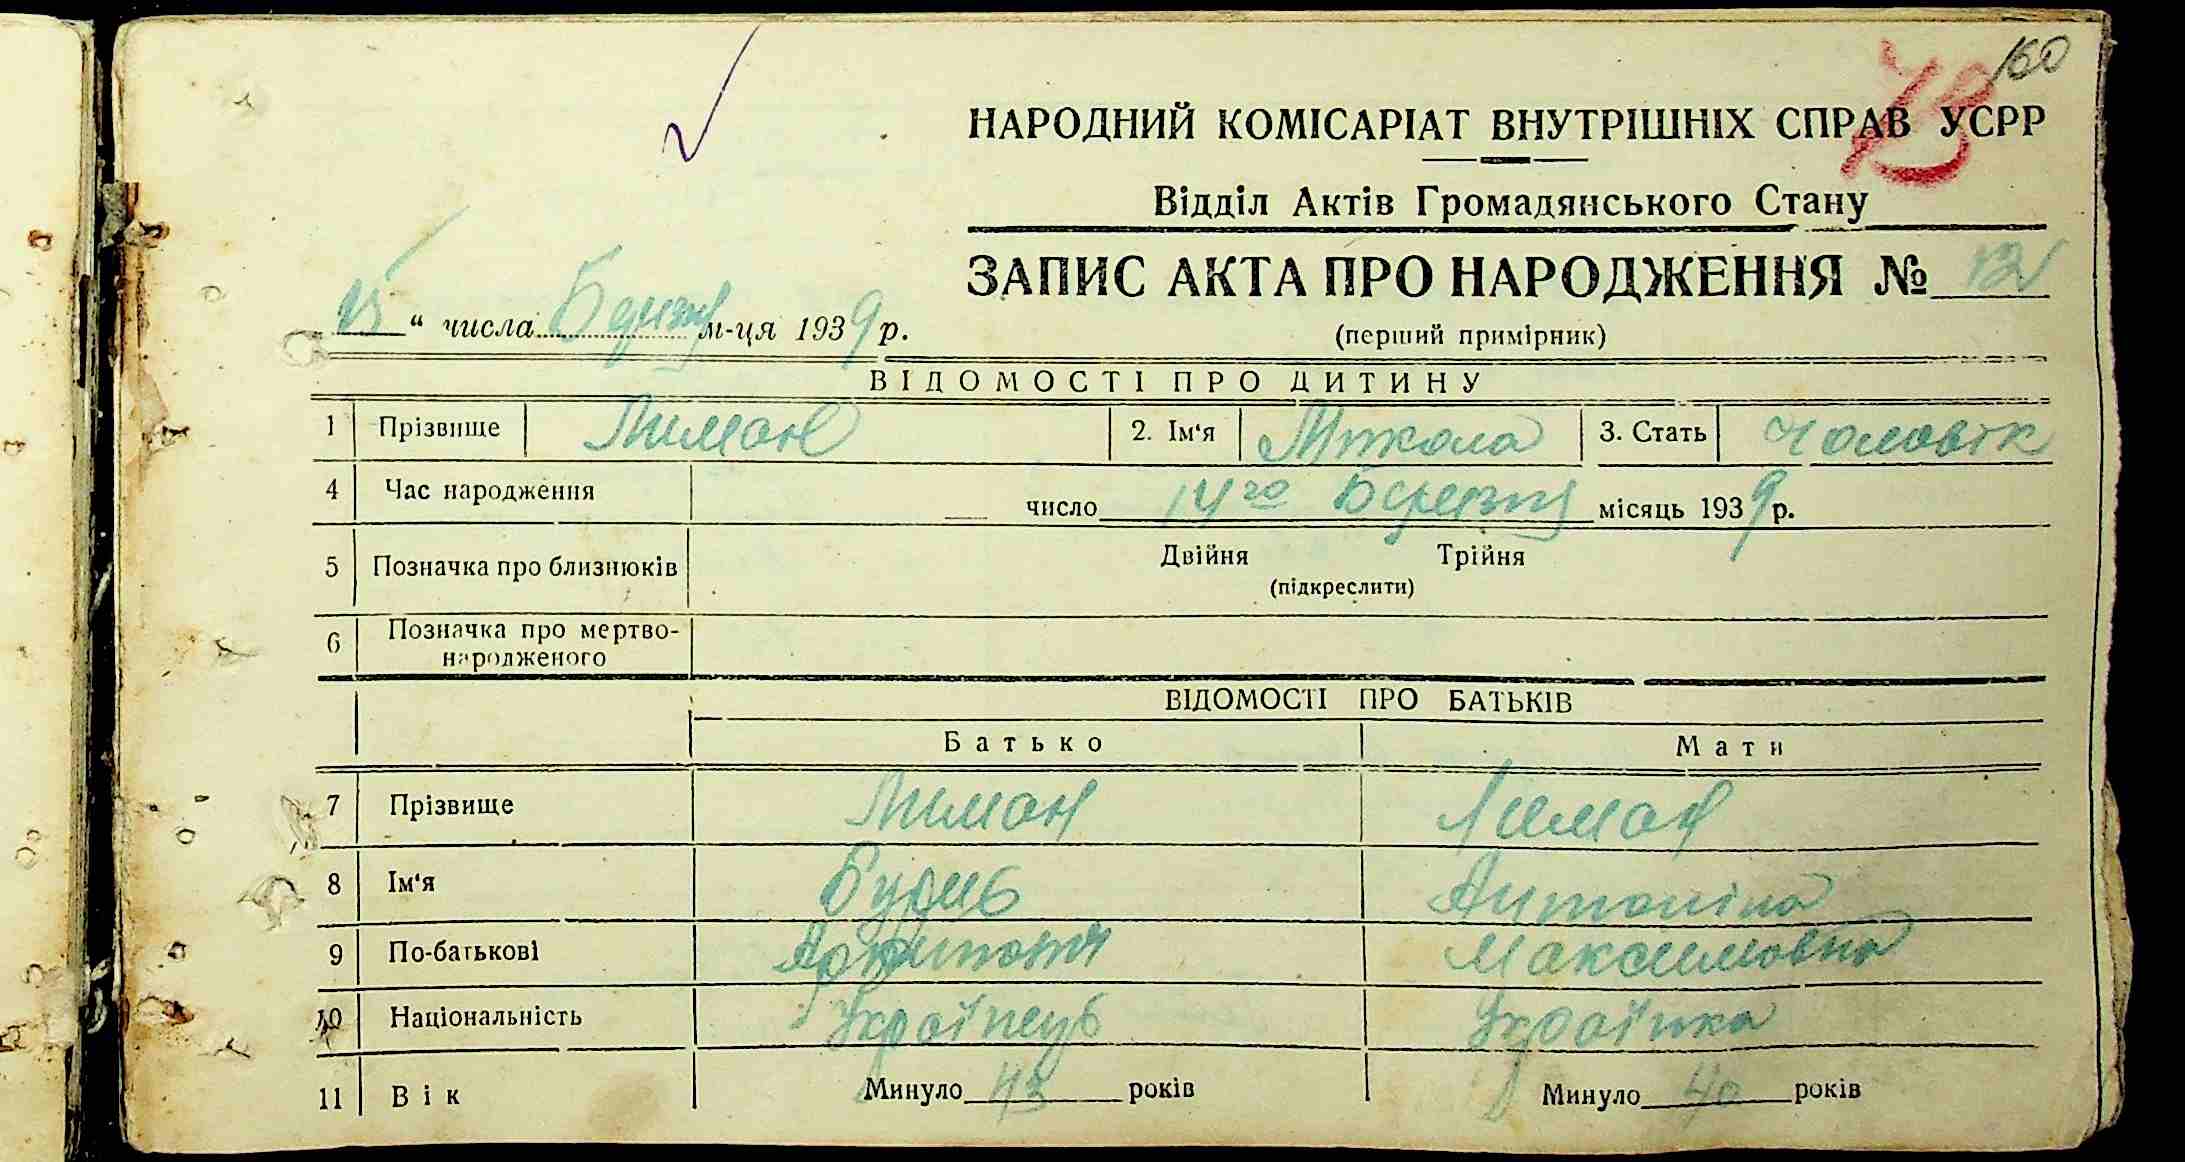 160
13
НАРОДНИЙ КОМІСАРІАТ ВНУТРІШНІХ СПРАВ УСРР
Відділ Актів Громадянського Стану
ЗАПИС АКТА ПРО НАРОДЖЕННЯ №
(перший примірник)
15 “ числа м-ця 1939 р.
ВІДОМОСТІ ПРО ДИТИНУ
1 Прізвище Лиман 2. Ім‘я Микола 3. Стать Чоловік
4 Час народження число 14го Березня місяць 1939 р.
5 Позначка про близнюків Двійня Трійня
(підкреслити)
6 Позначка про мертво-
народженого
ВІДОМОСТІ ПРО БАТЬКІВ
Батько Мати
7 Прізвище Лиман Лиман
8 Ім‘я Антоніна
9 По-батькові Максимовна
10 Національність Українець Українка
11 Вік Минуло 43 років Минуло 40 років